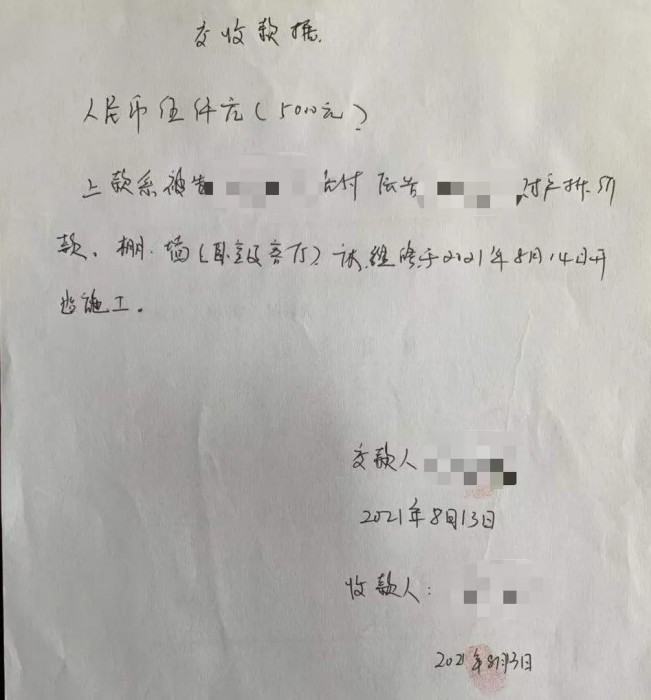 交收款据.
人民币伍仟元(5000元)
上款系被告 给付 原告 财产损
款、棚、墙(卧室及客厅) 维修于2021年8月14日开
始施工。
交款人
2021年8月13日
收款人:
2021年8月13日